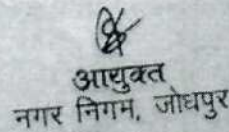 आयुक्त
नगर निगम, जोधपुर